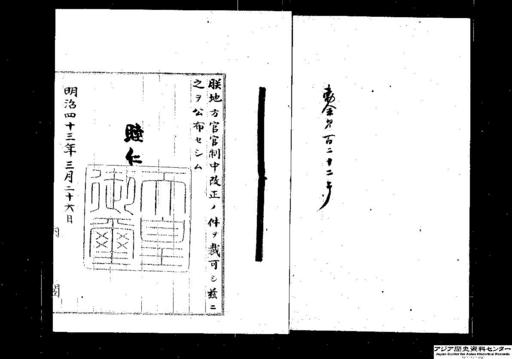 勅令第百二十二号
朕地方官官制中改正ノ件ヲ裁可シ茲ニ
之ヲ公布セシム
睦仁
天皇御璽
明治四十三年三月二十六日
内閣
アジア歴史資料センター
Japan Center for Asian Historical Records